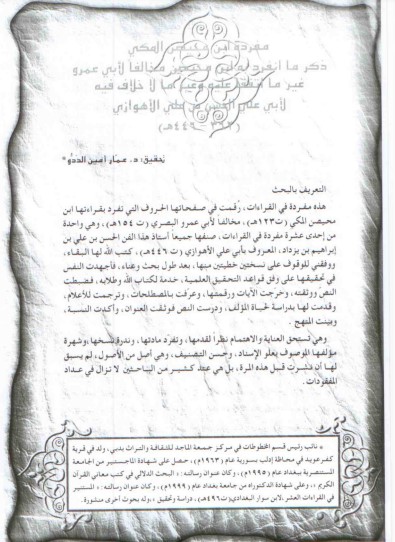 مفردة ابن محيصن المكي
ذكر ما انفرد به ابن محيصن مخالفا لأبي عمرو
غير ما اتفقا عليه وغير ما لا خلاف فيه
لأبي علي الحسن بن علي الأهوازي
(٣٦٢ - ٤٤٦هـ)
تحقيق: د. عمار أمين الددو*
التعريف بالبحث
هذه مفردة في القراءات، رُقمت في صفحاتها الحروف التي تفرد بقراءتها ابن
محيصن المكي (ت١٢٣هـ)، مخالفاً لأبي عمرو البصري (ت ١٥٤هـ)، وهي واحدة
من إحدى عشرة مفردة في القراءات، صنفها جميعاً أستاذ هذا الفن الحسن بن علي بن
إبراهيم بن يزداد، المعروف بأبي علي الأهوازي (ت ٤٤٦هـ)، كتب الله لها البقاء،
ووفقني للوقوف على نسختين خطيتين منها، بعد طول بحث وعناء، فأجهدت النفس
في تحقيقها على وفق قواعد التحقيق العلمية، خدمة لكتاب الله وطلابه، فضبطت
النصّ ووثقته، وخرجت الآيات ورقمتها، وعرفت بالمصطلحات، وترجمت للأعلام،
وقدمت لها بدراسة لحياة المؤلف، ودرست النص فوثقت العنوان، وأكدت النسبة،
وبينت المنهج.
وهي تستحق العناية والاهتمام نظراً لقدمها، وتفرّد مادتها، وندرة نسخها، وشهرة
مؤلفها الموصوف بعلو الإسناد، وحسن التصنيف، وهي أصل من الأصول، لم يسبق
لها أن نشرت قبل هذه المرة، بل هي عند كثير من الباحثين لا تزال في عداد
المفقودات.
* نائب رئيس قسم المخطوطات في مركز جمعة الماجد للثقافة والتراث بدبي، ولد في قرية
كفرعويد في محافظة إدلب بسورية عام (١٩٦٣م)، حصل على شهادة الماجستير من الجامعة
المستنصرية ببغداد عام (١٩٩٥م)، وكان عنوان رسالته: «البحث الدلالي في كتب معاني القرآن
الكريم»، وعلى شهادة الدكتوراه من جامعة بغداد عام (١٩٩٩م)، وكان عنوان رسالته: «المستنير
في القراءات العشر، لابن سوار البغدادي (ت٤٩٦هـ)، دراسة وتحقيق»، وله بحوث أخرى منشورة.